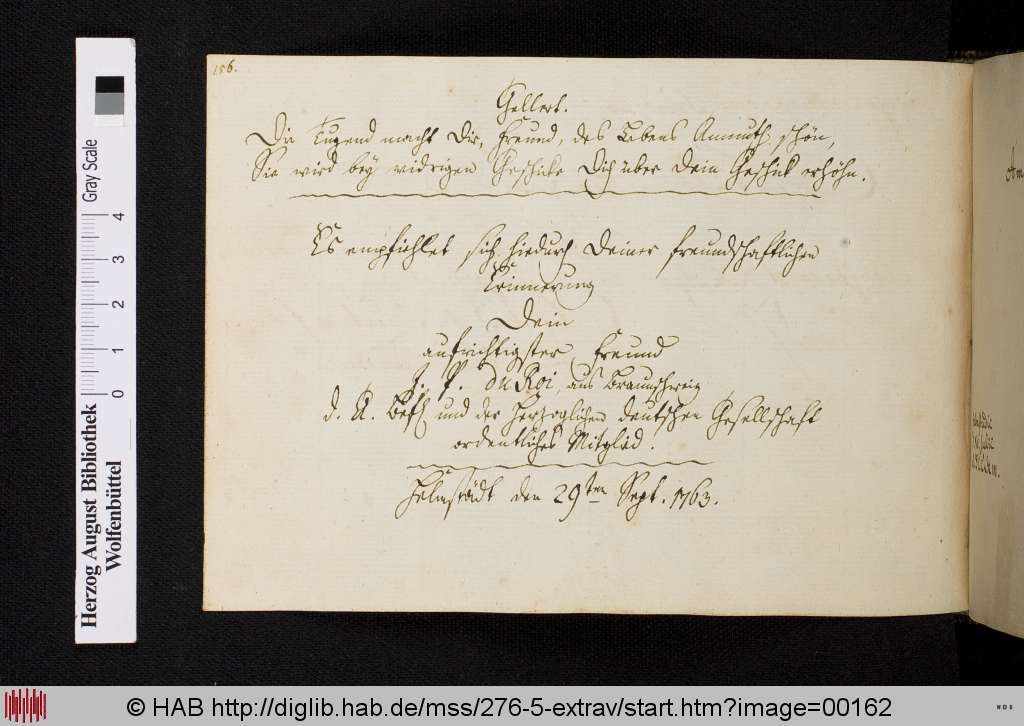 156.
Gellert.
Die Tugend macht Dir, Freund, des Lebens Anmuth schön,
Sie wird bey widrigen Geschicke Dich über Dein Geschick erhöhn.
Es empfiehlet sich hiedurch Deiner freundschaftlichen
Erinnerung
Dein
aufrichtigster Freund
J. P. du Roi, aus Braunschweig
d. R. Befl und der Herzoglichen deutschen Gesellschaft
ordentliches Mitglied.
Helmstädt den 29sten Sept. 1763.
Herzog August Bibliothek
Wolfenbüttel
Gray Scale
0 1 2 3 4
© HAB http://diglib.hab.de/mss/276-5-extrav/start.htm?image=00162